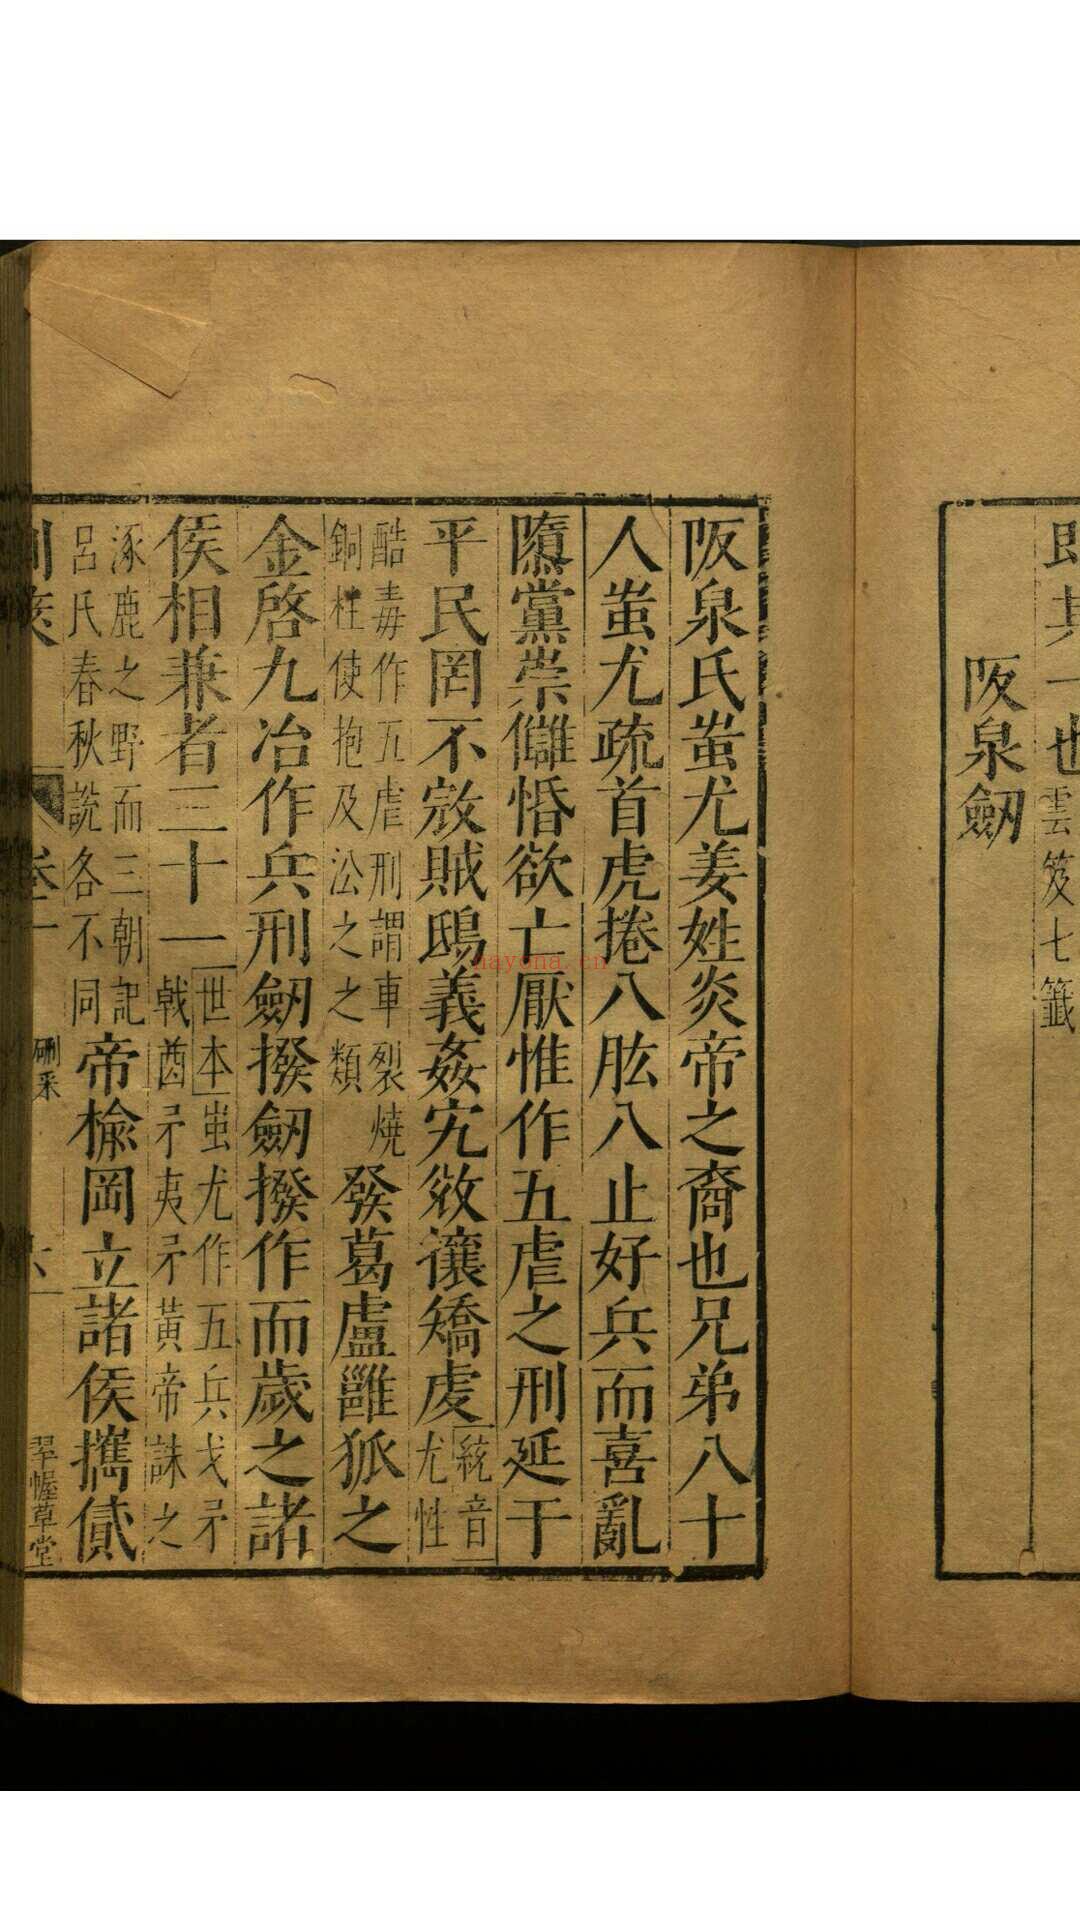 即其一也雲笈七籤
阪泉劒
阪泉氏蚩尤姜姓炎帝之裔也兄弟八十
人蚩尤疏首虎捲八肱八止好兵而喜亂
隳黨崇讎惛欲亡厭惟作五虐之刑延于
平民罔不寇賊鴟義姦宄敓攘矯虔統音尤性
酷毒作五虐刑謂車裂燒銅柱使抱及沿之之類發葛盧雝狐之
金啓九冶作兵刑劒撥劒撥作而歲之諸
侯相兼者三十一世本蚩尤作五兵戈矛戟酋矛夷矛黃帝誅之
涿鹿之野而三朝記呂氏春秋說各不同帝榆岡立諸侯攜貳
劍莢 卷一 刪釆 六 翠幄草堂
nayona.cn